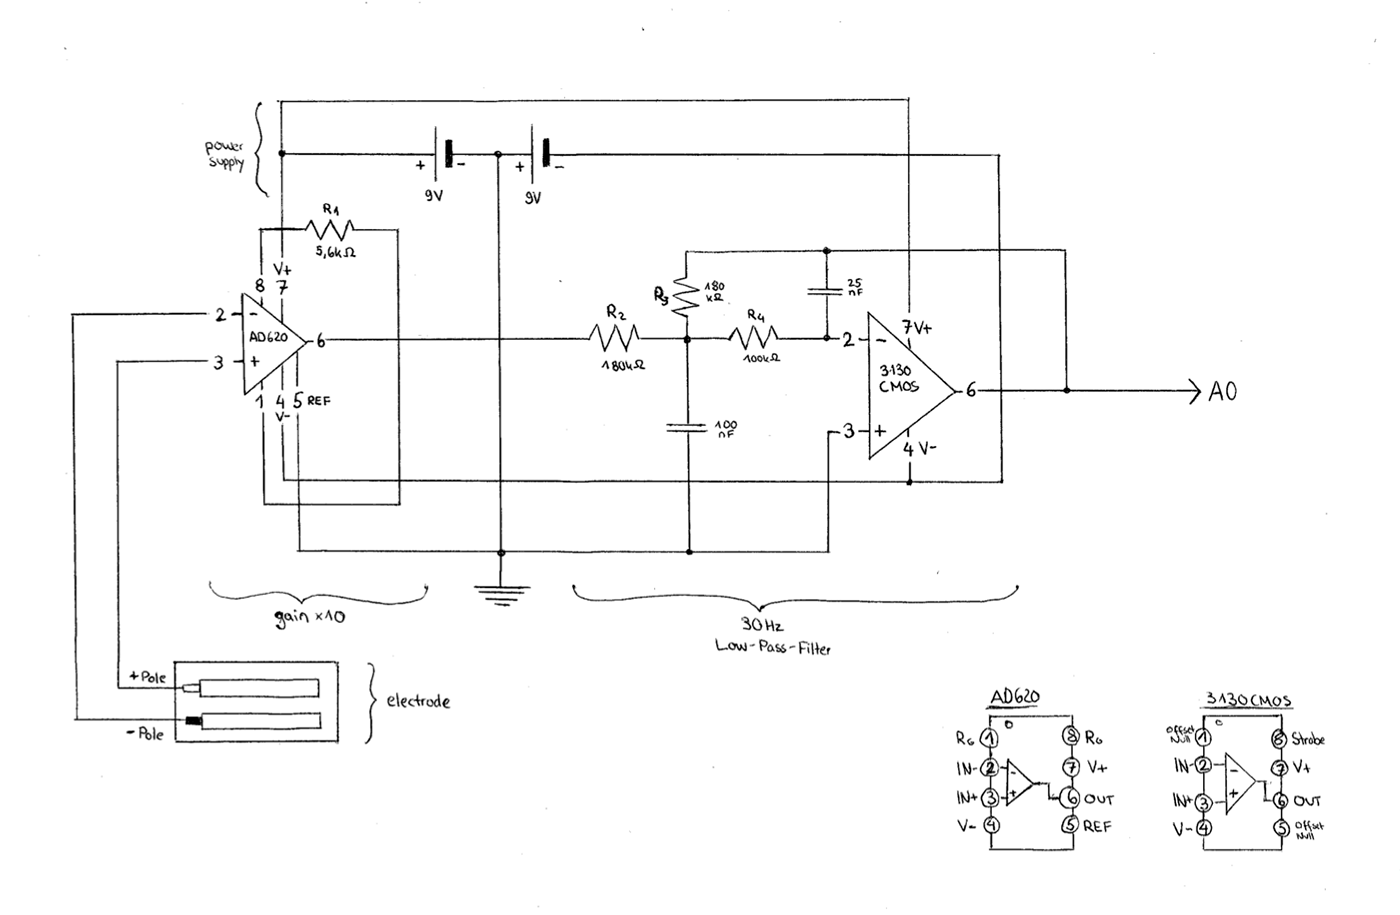 power
supply
+
-
+
-
9V
9V
R1
5,6kΩ
V+
8 7
2
-
AD620
6
3
+
1 4 5 REF
V-
R2
180kΩ
R3
180
kΩ
R4
100kΩ
25
nF
100
nF
7V+
2
-
3130
CMOS
6
A0
3
+
4 V-
gain x10
30Hz
Low-Pass-Filter
+Pole
-Pole
electrode
AD620
RG 1
8 RG
IN- 2
-
7 V+
IN+ 3
+
6 OUT
V- 4
5 REF
3130CMOS
Offset
Null
1
8 Strobe
IN- 2
-
7 V+
IN+ 3
+
6 OUT
V- 4
5 Offset
Null